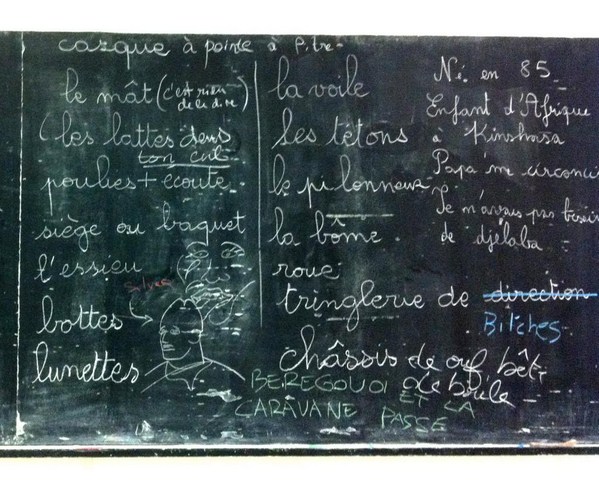 casque à pointe à Pitre
le mât (c'est rien de le dire)
(les lattes dans ton cul
poulies + écoute
siège ou baquet
l'essieu
Sylvain
bottes
lunettes
la voile
les tétons
le pilonneur
la bôme
roue
tringlerie de direction
Bitches
châssis de ouf bêt
de brile
BEREGOVOI ET LA
CARAVANE PASSE
Né en 85
Enfant d'Afrique
à Kinshasa
Papa m'a circonci
Je n'avais pas besoin
de djélaba